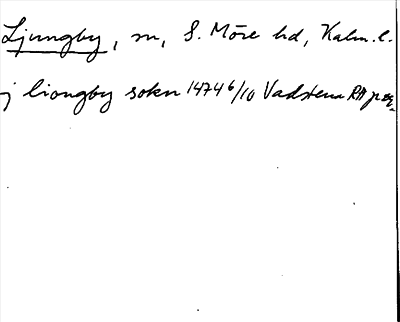 Ljungby, sn, S. Möre hd, Kalm. l.
j liongby sokn 1474 6/10 Vadstena RA perg.